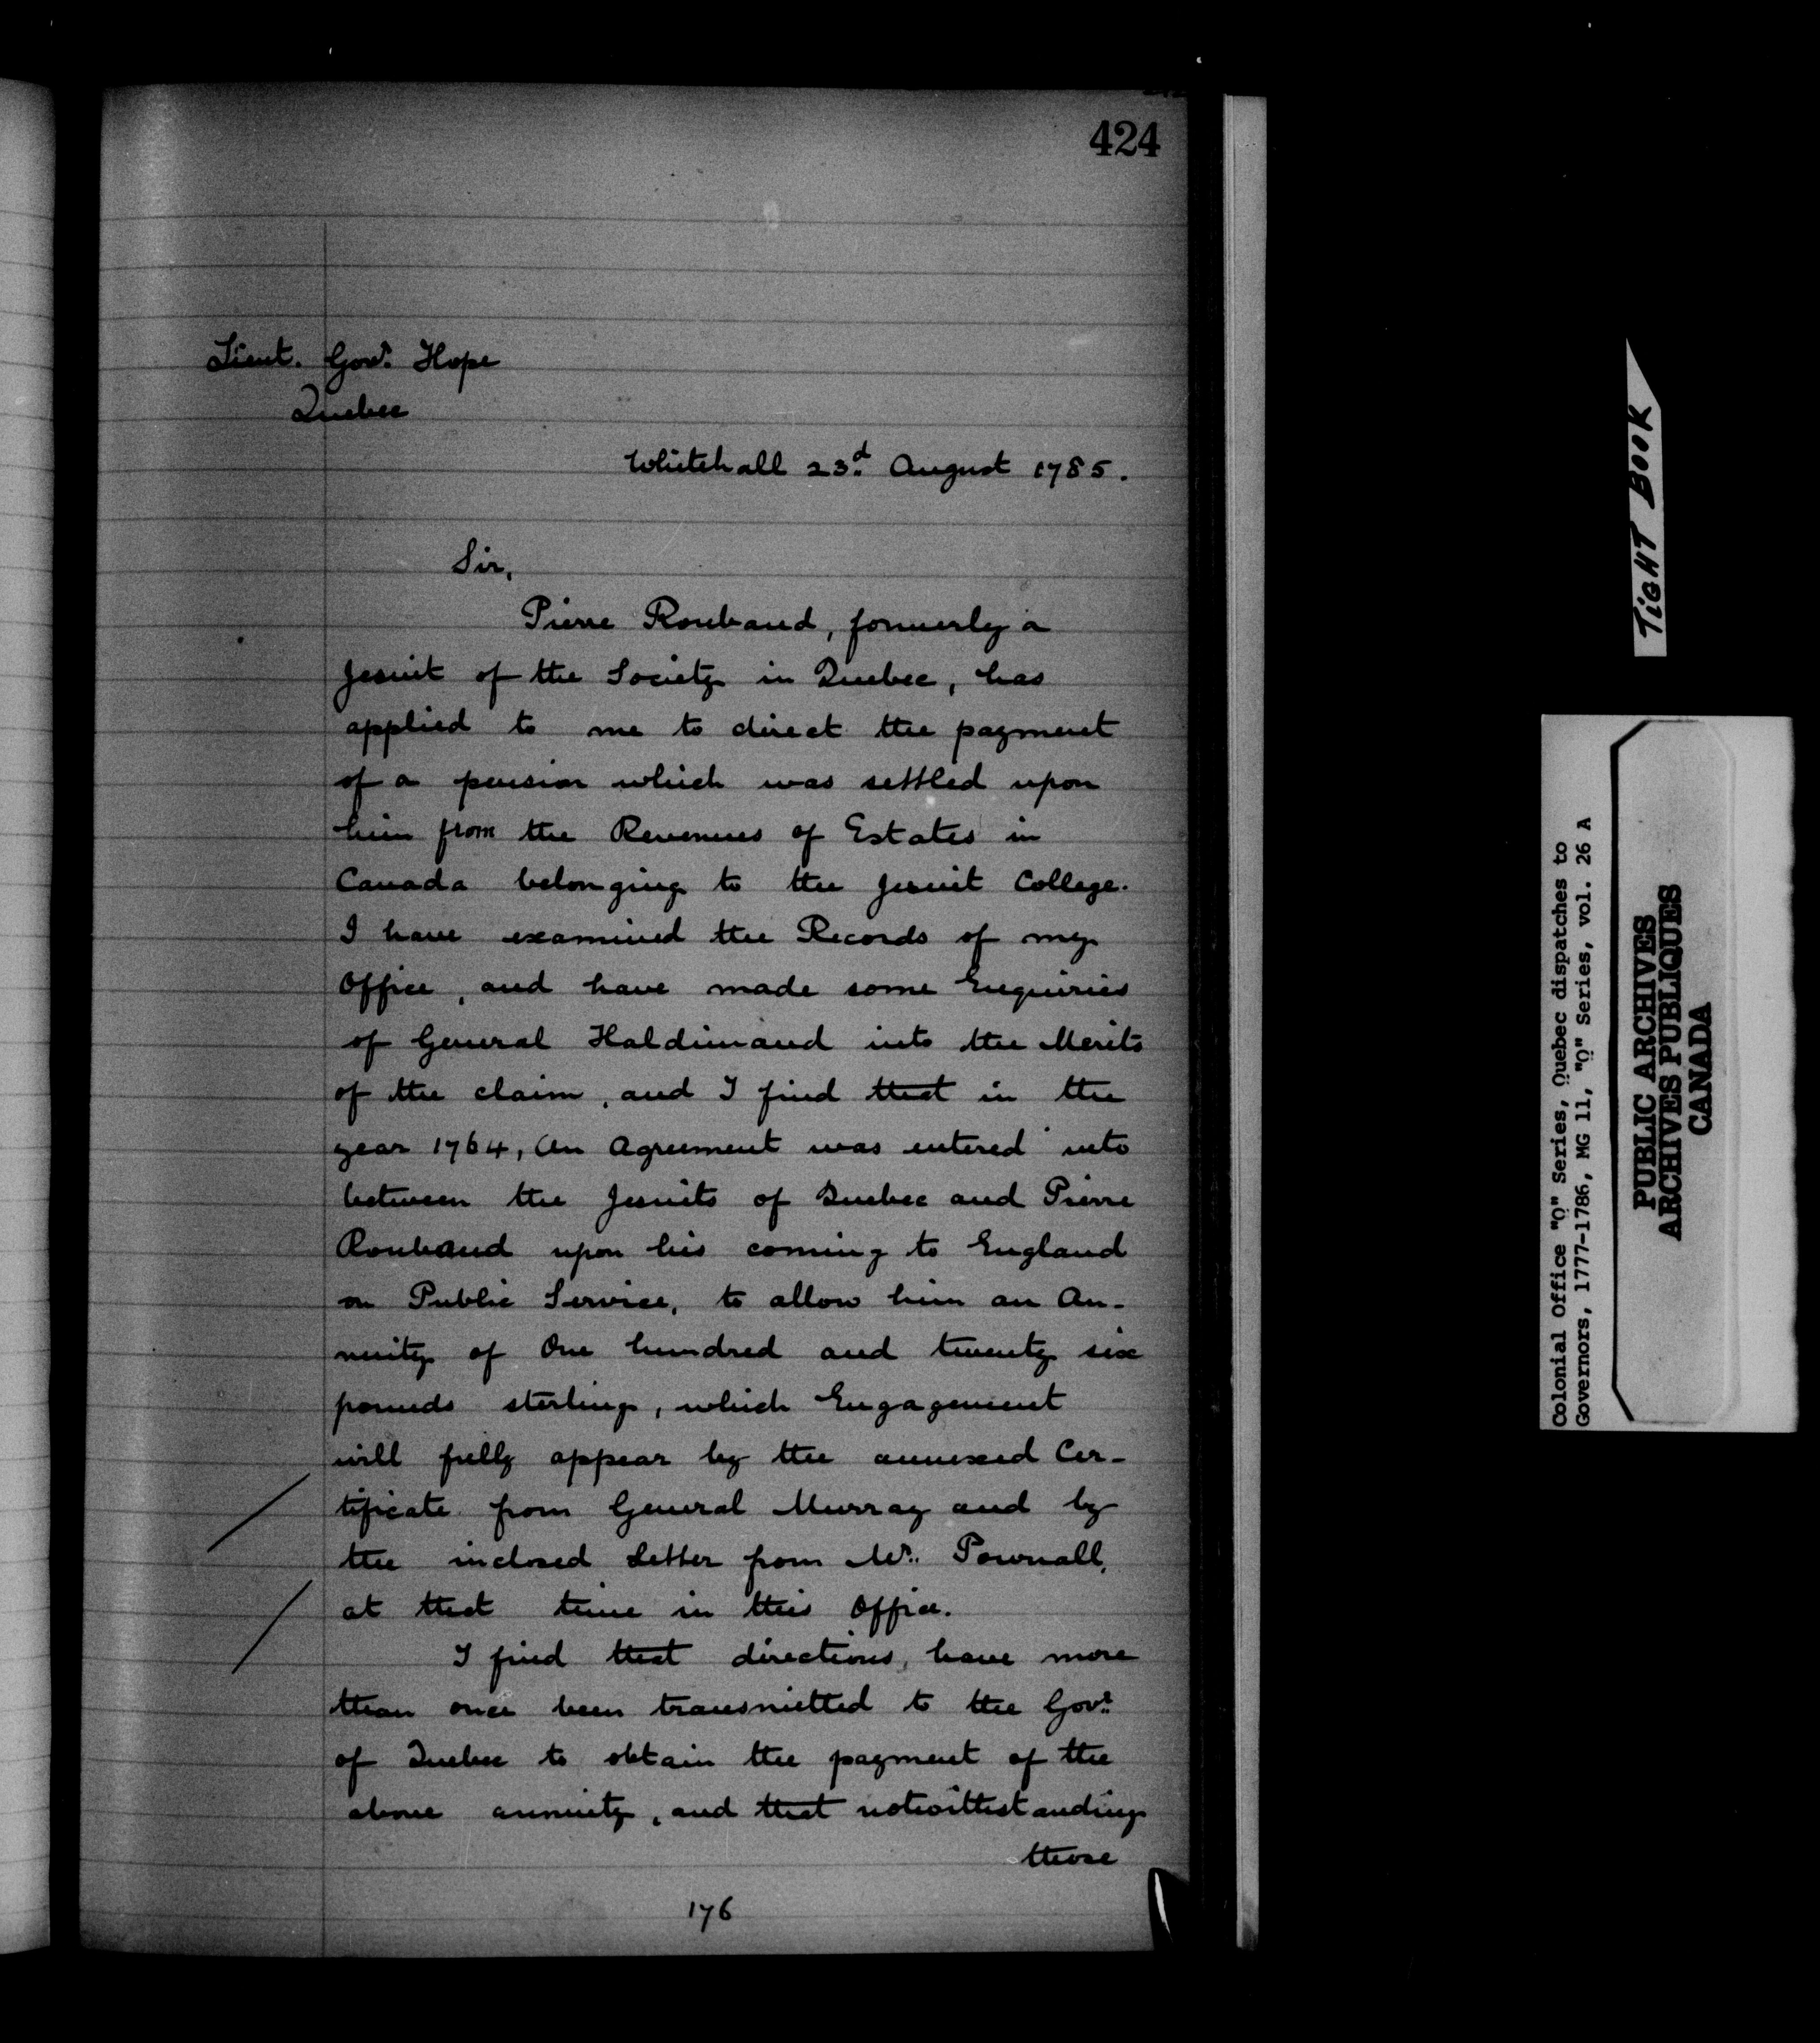 424
Lieut. Govr. Hope
Quebec
Whitehall 23d. August 1785.
Sir,
Pierre Roubaud, formerly a
Jesuit of the Society in Quebec, has
applied to me to direct the payment
of a pension which was settled upon
him from the Revenues of Estates in
Canada belonging to the Jesuit College.
I have examined the Records of my
Office, and have made some Enquiries
of General Haldimand into the Merits
of the claim, and I find that in the
year 1764, An Agreement was entered into
between the Jesuits of Quebec and Pierre
Roubaud upon his coming to England
on Public Service, to allow him an An-
nuity of One hundred and twenty six
pounds sterling, which Engagement
will fully appear by the annexed Cer-
tificate from General Murray and by
the inclosed Letter from Mr. Pownall,
at that time in this Office.
I find that directions, have more
than once been transmitted to the Govr.
of Quebec to obtain the payment of the
above annuity, and that notwithstanding
those
176
TIGHT BOOK
Colonial Office "Q" Series, Quebec dispatches to
Governors, 1777-1786, MG 11, "Q" Series, vol. 26 A
PUBLIC ARCHIVES
ARCHIVES PUBLIQUES
CANADA